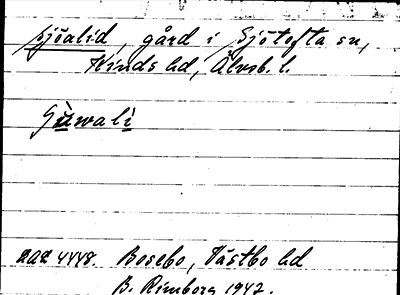 Sjöalid, gård i Sjötofta sn,
Kinds hd, Älvsb. l.
Sjùwali
aaa 4448. Bosebo, Västbo hd
B. Rimborg 1942.